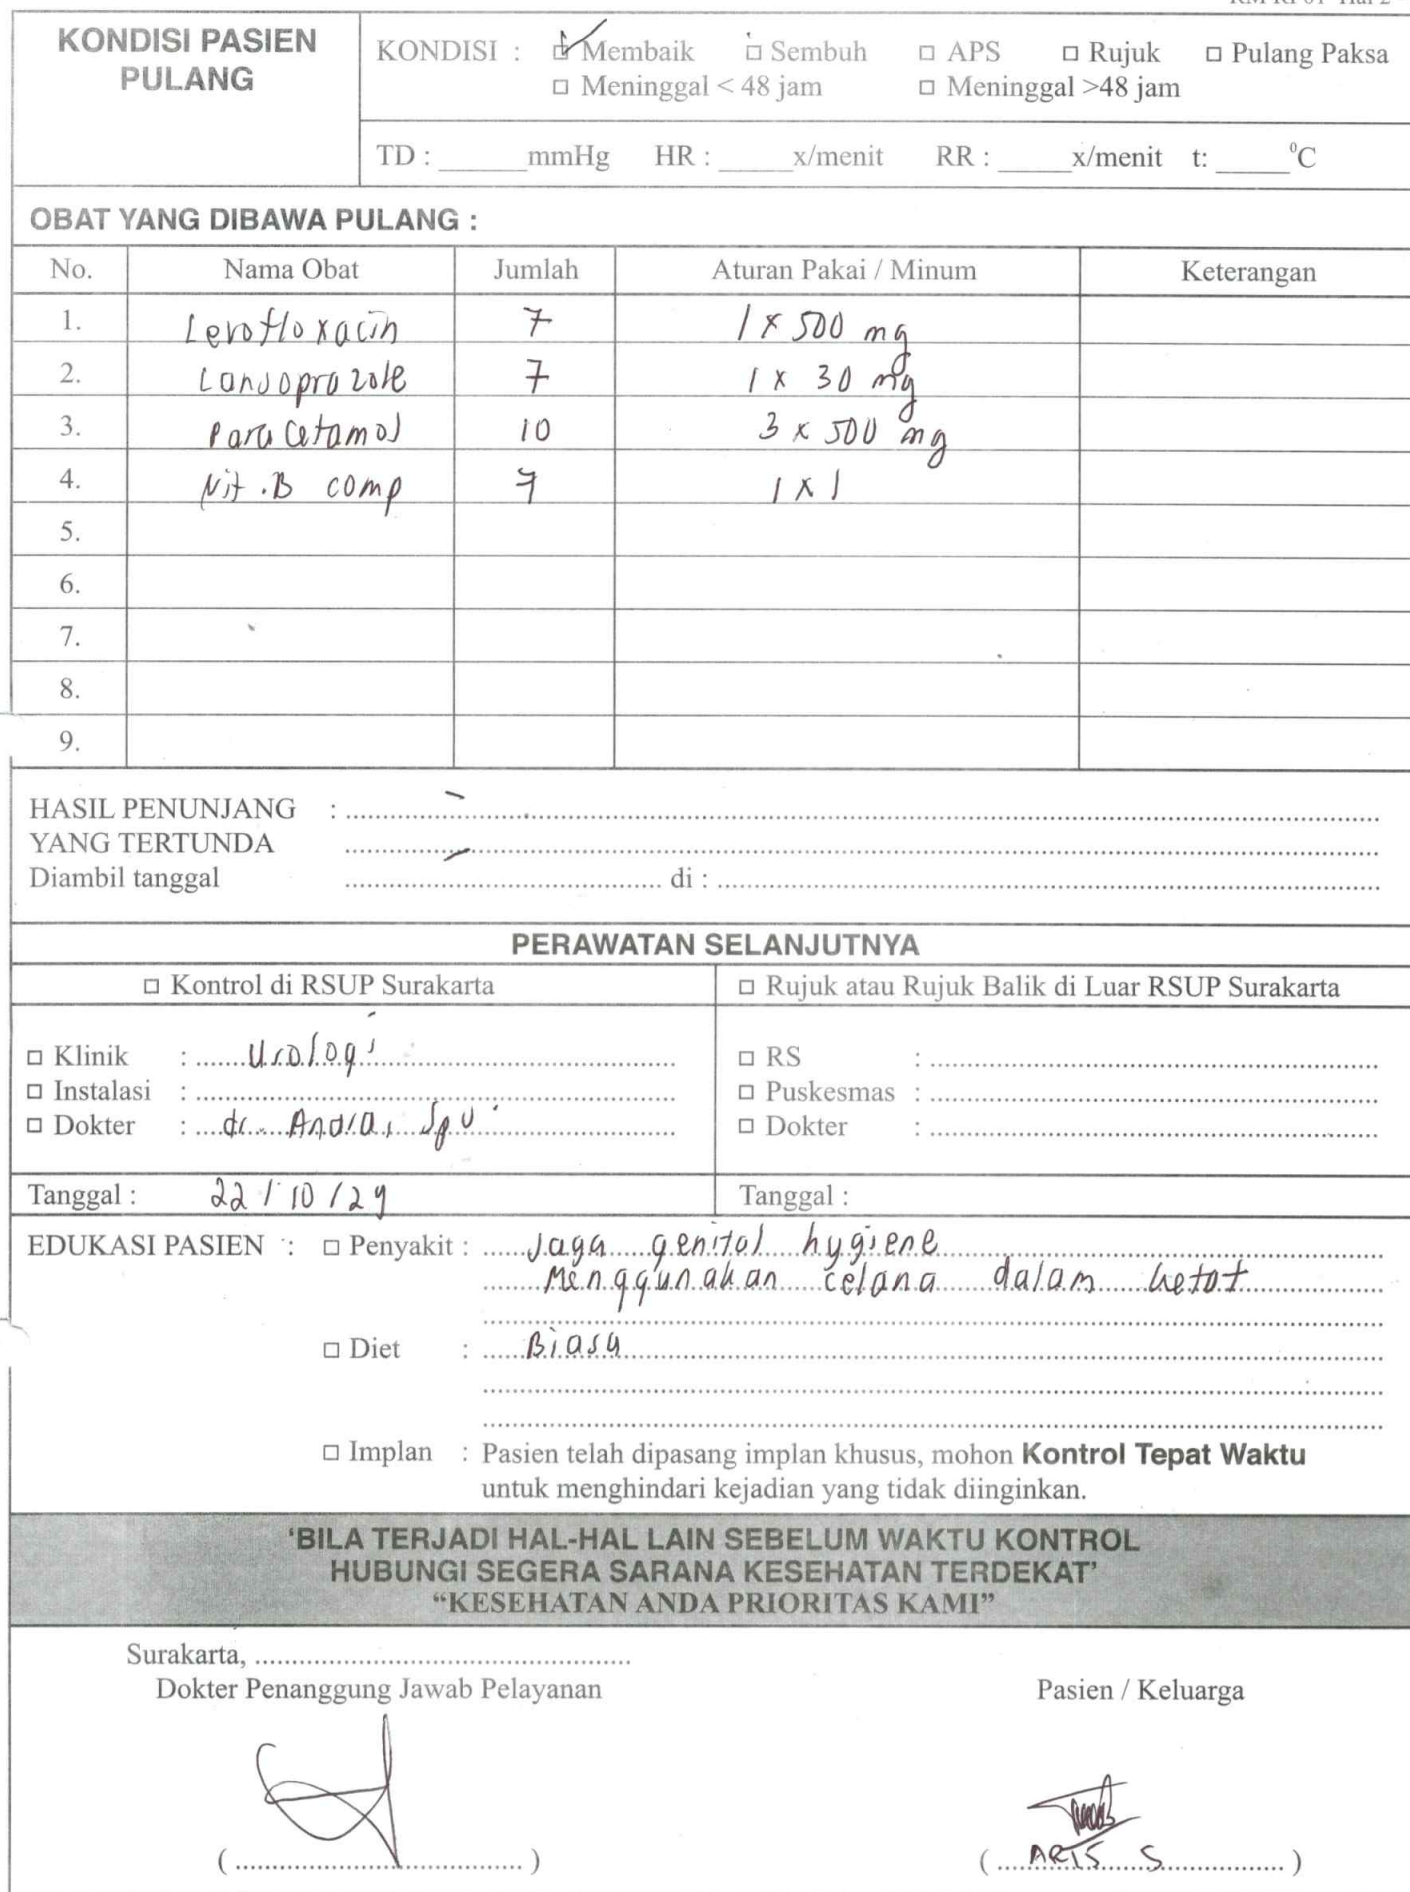 KONDISI PASIEN PULANG
KONDISI : □ Membaik □ Sembuh □ APS □ Rujuk □ Pulang Paksa
□ Meninggal < 48 jam □ Meninggal >48 jam
TD : ______mmHg HR : _____x/menit RR : _____x/menit t: _____⁰C
OBAT YANG DIBAWA PULANG :
No. Nama Obat Jumlah Aturan Pakai / Minum Keterangan
1. Levofloxacin 7 1 x 500 mg
2. Lansoprazole 7 1 x 30 mg
3. Paracetamol 10 3 x 500 mg
4. Vit .B comp 7 1 x 1
5.
6.
7.
8.
9.
HASIL PENUNJANG : -
YANG TERTUNDA -
Diambil tanggal di :
PERAWATAN SELANJUTNYA
□ Kontrol di RSUP Surakarta □ Rujuk atau Rujuk Balik di Luar RSUP Surakarta
□ Klinik : Urologi □ RS :
□ Instalasi : □ Puskesmas :
□ Dokter : dr. Andra, SpU □ Dokter :
Tanggal : 22 / 10 / 24 Tanggal :
EDUKASI PASIEN : □ Penyakit : Jaga genital hygiene
Menggunakan celana dalam ketat
□ Diet : Biasa
□ Implan : Pasien telah dipasang implan khusus, mohon Kontrol Tepat Waktu
untuk menghindari kejadian yang tidak diinginkan.
'BILA TERJADI HAL-HAL LAIN SEBELUM WAKTU KONTROL
HUBUNGI SEGERA SARANA KESEHATAN TERDEKAT'
"KESEHATAN ANDA PRIORITAS KAMI"
Surakarta,
Dokter Penanggung Jawab Pelayanan Pasien / Keluarga
( ) ( ARIS S )